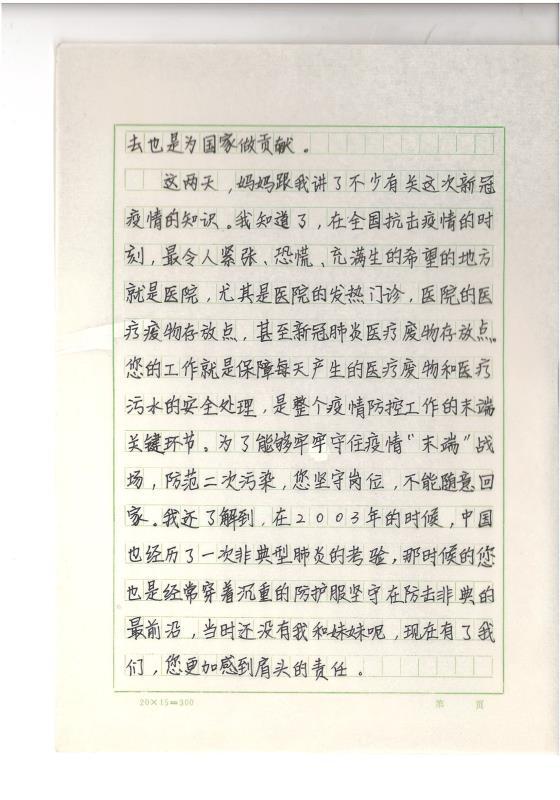 去也是为国家做贡献。
这两天，妈妈跟我讲了不少有关这次新冠
疫情的知识。我知道了，在全国抗击疫情的时
刻，最令人紧张、恐慌、充满生的希望的地方
就是医院，尤其是医院的发热门诊，医院的医
疗废物存放点，甚至新冠肺炎医疗废物存放点。
您的工作就是保障每天产生的医疗废物和医疗
污水的安全处理，是整个疫情防控工作的末端
关键环节。为了能够牢牢守住疫情“末端”战
场，防范二次污染，您坚守岗位，不能随意回
家。我还了解到，在2003年的时候，中国
也经历了一次非典型肺炎的考验，那时候的您
也是经常穿着沉重的防护服坚守在防击非典的
最前沿，当时还没有我和妹妹呢，现在有了我
们，您更加感到肩头的责任。
20×15=300
第 页